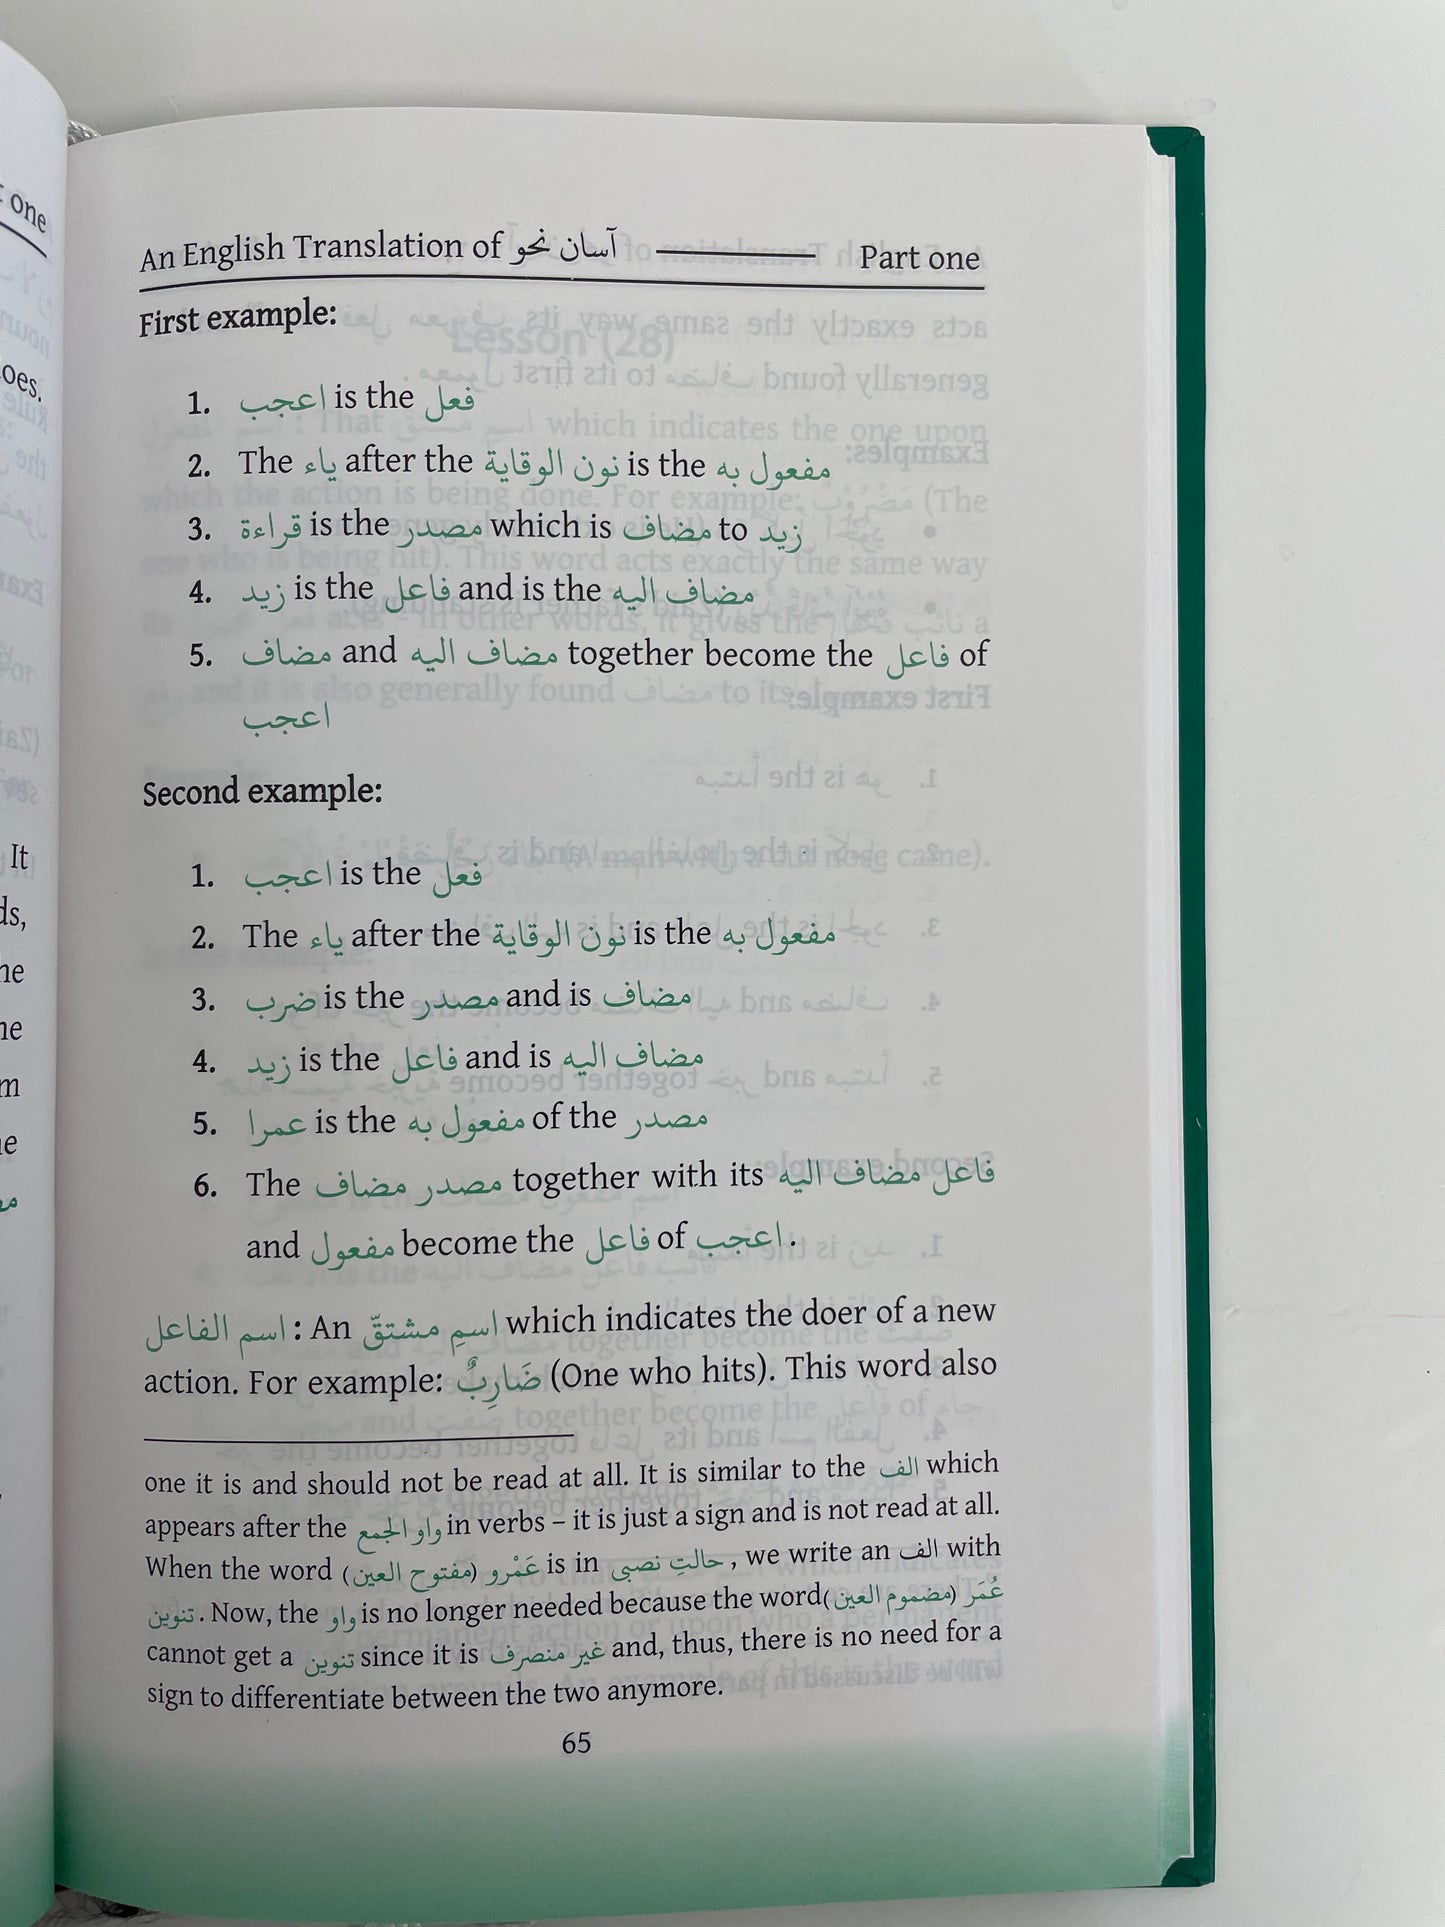 An English Translation of آسان نحو Part one
First example:
1. اعجب is the فعل
2. The ياء after the نون الوقاية is the مفعول به
3. قراءة is the مصدر which is مضاف to زيد
4. زيد is the فاعل and is the مضاف اليه
5. مضاف and مضاف اليه together become the فاعل of
اعجب
Second example:
1. اعجب is the فعل
2. The ياء after the نون الوقاية is the مفعول به
3. ضرب is the مصدر and is مضاف
4. زيد is the فاعل and is مضاف اليه
5. عمرا is the مفعول به of the مصدر
6. The مصدر مضاف together with its فاعل مضاف اليه
and مفعول become the فاعل of اعجب.
اسم الفاعل: An اسمِ مشتقّ which indicates the doer of a new
action. For example: ضَارِبٌ (One who hits). This word also
one it is and should not be read at all. It is similar to the الف which
appears after the واو الجمع in verbs – it is just a sign and is not read at all.
When the word عَمْرو (مفتوح العين) is in حالتِ نصبي, we write an الف with
تنوين. Now, the واو is no longer needed because the word عُمَر (مضموم العين)
cannot get a تنوين since it is غير منصرف and, thus, there is no need for a
sign to differentiate between the two anymore.
65